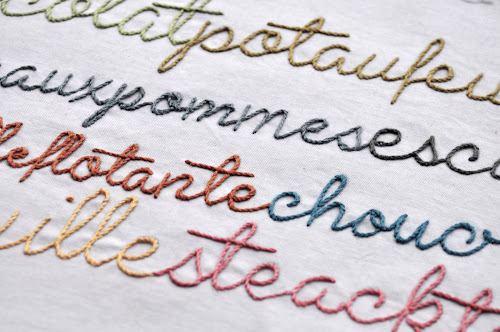 colatpotaufeu
auxpommesesc
leflotantechouc
illesteack